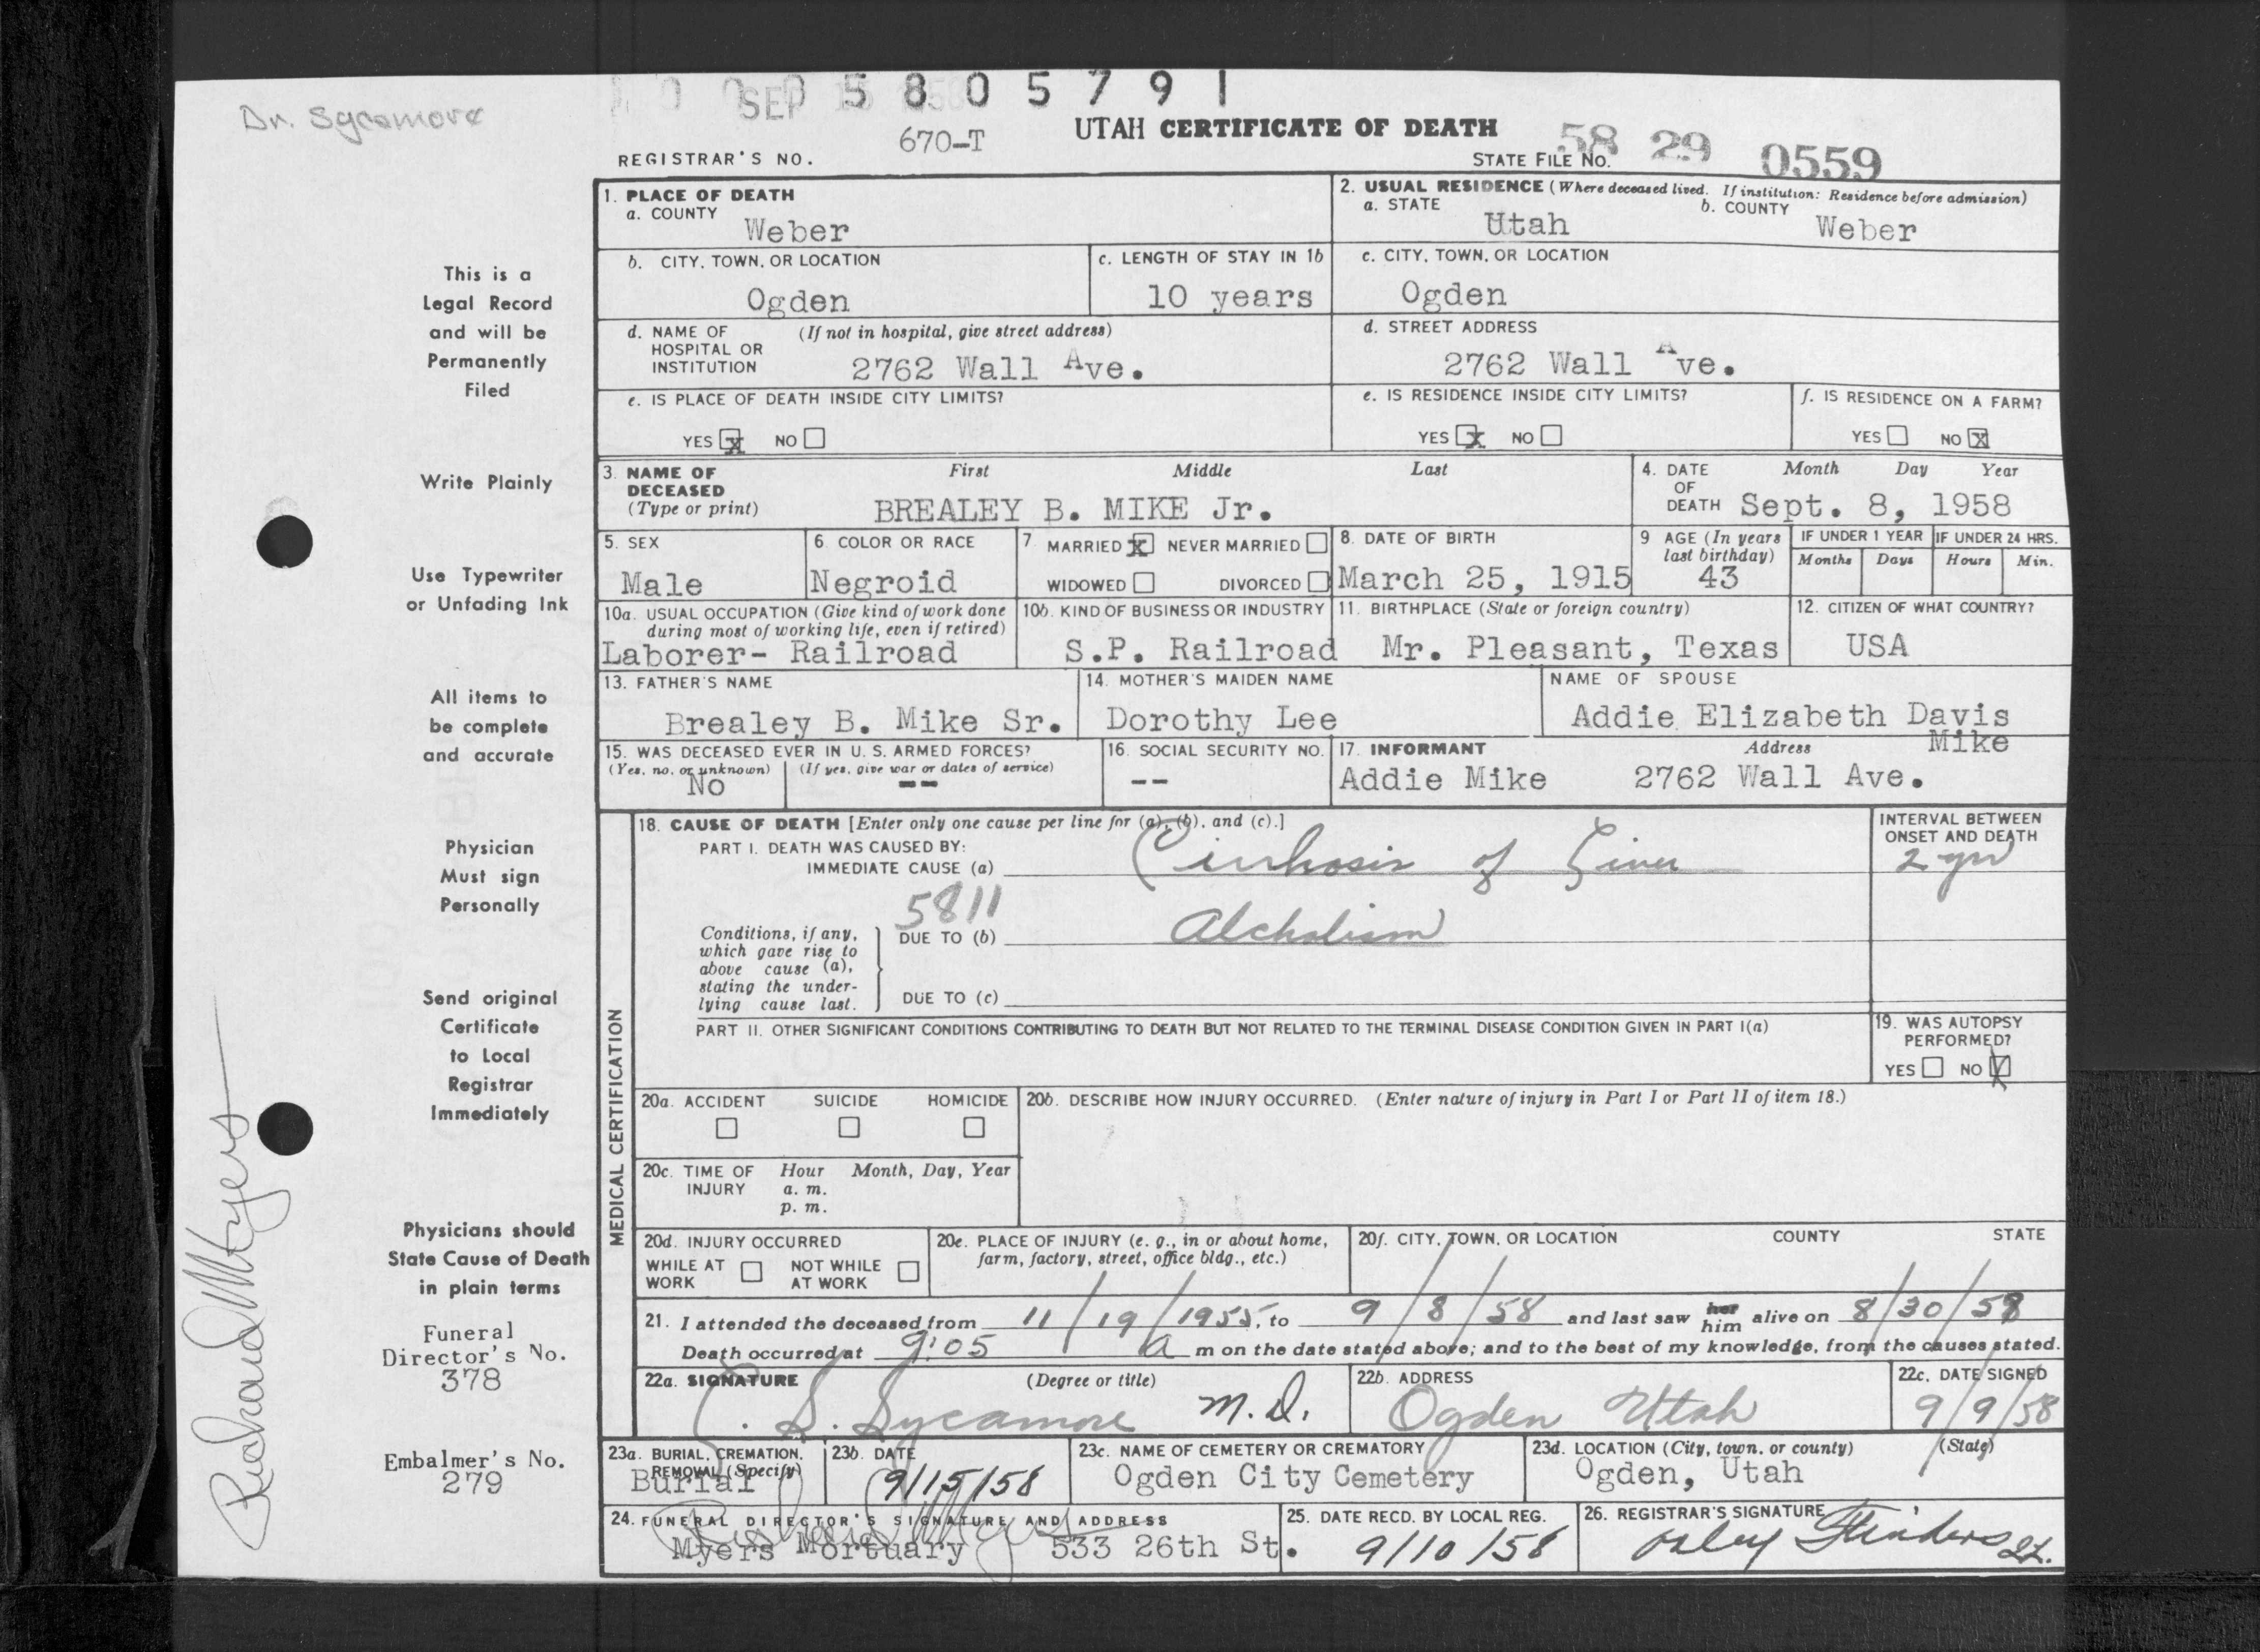 Dr. Sycamore
SEP
5 8 0 5 7 9 1
670-T
UTAH CERTIFICATE OF DEATH
REGISTRAR'S NO.
STATE FILE NO. 58 29 0559
1. PLACE OF DEATH
a. COUNTY
Weber
2. USUAL RESIDENCE (Where deceased lived. If institution: Residence before admission)
a. STATE
Utah
b. COUNTY
Weber
b. CITY, TOWN, OR LOCATION
Ogden
c. LENGTH OF STAY IN 1b
10 years
c. CITY, TOWN, OR LOCATION
Ogden
d. NAME OF HOSPITAL OR INSTITUTION
(If not in hospital, give street address)
2762 Wall Ave.
d. STREET ADDRESS
2762 Wall Ave.
e. IS PLACE OF DEATH INSIDE CITY LIMITS?
YES X NO
e. IS RESIDENCE INSIDE CITY LIMITS?
YES X NO
f. IS RESIDENCE ON A FARM?
YES NO X
3. NAME OF DECEASED (Type or print)
First Middle Last
BREALEY B. MIKE Jr.
4. DATE OF DEATH
Month Day Year
Sept. 8, 1958
5. SEX
Male
6. COLOR OR RACE
Negroid
7. MARRIED X NEVER MARRIED
WIDOWED DIVORCED
8. DATE OF BIRTH
March 25, 1915
9 AGE (In years last birthday)
43
IF UNDER 1 YEAR
Months Days
IF UNDER 24 HRS.
Hours Min.
10a. USUAL OCCUPATION (Give kind of work done during most of working life, even if retired)
Laborer- Railroad
10b. KIND OF BUSINESS OR INDUSTRY
S.P. Railroad
11. BIRTHPLACE (State or foreign country)
Mr. Pleasant, Texas
12. CITIZEN OF WHAT COUNTRY?
USA
13. FATHER'S NAME
Brealey B. Mike Sr.
14. MOTHER'S MAIDEN NAME
Dorothy Lee
NAME OF SPOUSE
Addie Elizabeth Davis
Mike
15. WAS DECEASED EVER IN U. S. ARMED FORCES?
(Yes, no, or unknown) (If yes, give war or dates of service)
No --
16. SOCIAL SECURITY NO.
--
17. INFORMANT Address
Addie Mike 2762 Wall Ave.
MEDICAL CERTIFICATION
18. CAUSE OF DEATH [Enter only one cause per line for (a), (b), and (c).]
PART I. DEATH WAS CAUSED BY:
IMMEDIATE CAUSE (a) Cirrhosis of Liver
INTERVAL BETWEEN ONSET AND DEATH
2 yrs
5811
Conditions, if any, which gave rise to above cause (a), stating the underlying cause last.
DUE TO (b) Alcholism
DUE TO (c)
PART II. OTHER SIGNIFICANT CONDITIONS CONTRIBUTING TO DEATH BUT NOT RELATED TO THE TERMINAL DISEASE CONDITION GIVEN IN PART I(a)
19. WAS AUTOPSY PERFORMED?
YES NO X
20a. ACCIDENT SUICIDE HOMICIDE
20b. DESCRIBE HOW INJURY OCCURRED. (Enter nature of injury in Part I or Part II of item 18.)
20c. TIME OF INJURY
Hour Month, Day, Year
a. m.
p. m.
20d. INJURY OCCURRED
WHILE AT WORK NOT WHILE AT WORK
20e. PLACE OF INJURY (e. g., in or about home, farm, factory, street, office bldg., etc.)
20f. CITY, TOWN, OR LOCATION COUNTY STATE
21. I attended the deceased from 11/19/1955, to 9/8/58 and last saw her him alive on 8/30/58
Death occurred at 9:05 A m on the date stated above; and to the best of my knowledge, from the causes stated.
22a. SIGNATURE (Degree or title)
C. S. Sycamore M.D.
22b. ADDRESS
Ogden Utah
22c. DATE SIGNED
9/9/58
23a. BURIAL, CREMATION, REMOVAL (Specify)
Burial
23b. DATE
9/15/58
23c. NAME OF CEMETERY OR CREMATORY
Ogden City Cemetery
23d. LOCATION (City, town, or county) (State)
Ogden, Utah
24. FUNERAL DIRECTOR'S SIGNATURE AND ADDRESS
Richard Myers
Myers Mortuary 533 26th St.
25. DATE RECD. BY LOCAL REG.
9/10/58
26. REGISTRAR'S SIGNATURE
This is a
Legal Record
and will be
Permanently
Filed
Write Plainly
Use Typewriter
or Unfading Ink
All items to
be complete
and accurate
Physician
Must sign
Personally
Send original
Certificate
to Local
Registrar
Immediately
Physicians should
State Cause of Death
in plain terms
Funeral
Director's No.
378
Embalmer's No.
279
Richard Myers